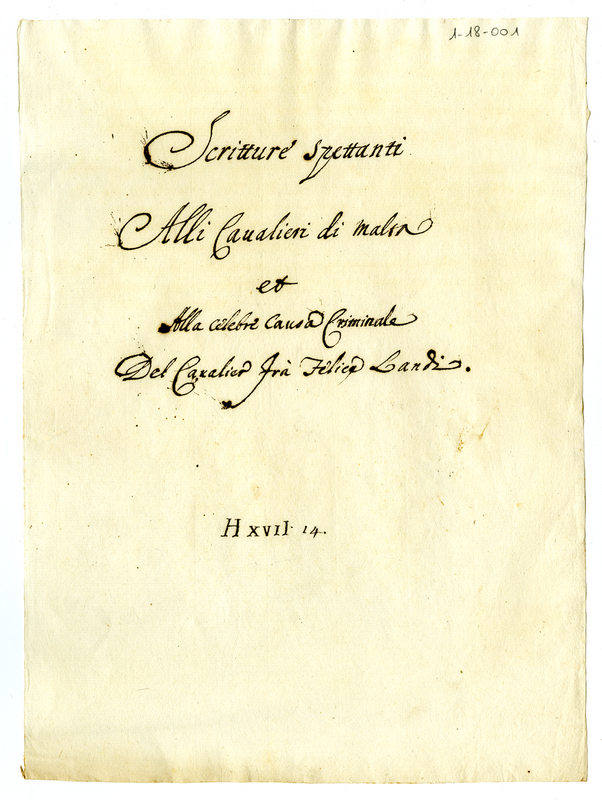 1-18-001
Scritture spettanti
Alli Caualieri di malta
et
Alla celebre causa Criminale
Del Caualier Frà Felice Landi.
H XVII. 14.